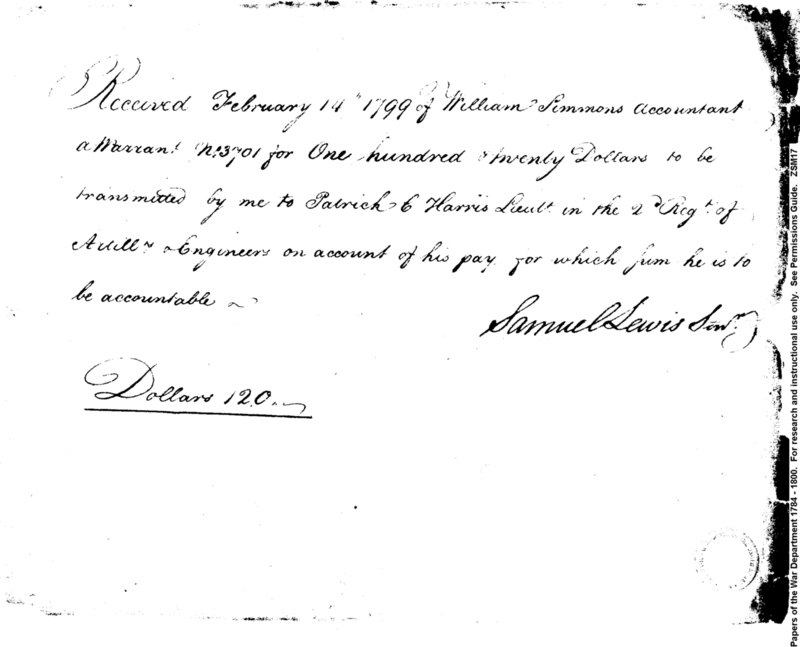 Received February 14th 1799 of William Simmons Accountant
a Warrant No. 3701 for One hundred & twenty Dollars to be
transmitted by me to Patrick C Harris Lieut. in the 2d Regt. of
Artillr & Engineers on account of his pay for which sum he is to
be accountable
Samuel Lewis Senr.
Dollars 120
Papers of the War Department 1784 - 1800. For research and instructional use only. See Permissions Guide. ZSM17